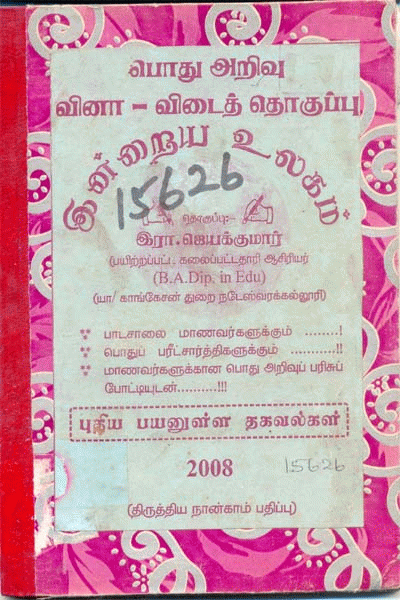 பொது அறிவு
வினா – விடைத் தொகுப்பு
இன்றைய உலகம்
15626
தொகுப்பு:-
இரா.ஜெயக்குமார்
(பயிற்றப்பட்ட கலைப்பட்டதாரி ஆசிரியர்
(B.A.Dip. in Edu)
(யா/ காங்கேசன் துறை நடேஸ்வரக்கல்லூரி)
பாடசாலை மாணவர்களுக்கும் ........!
பொதுப் பரீட்சார்த்திகளுக்கும் ...........!!
மாணவர்களுக்கான பொது அறிவுப் பரிசுப்
போட்டியுடன்.........!!!
புதிய பயனுள்ள தகவல்கள்
2008
15626
(திருத்திய நான்காம் பதிப்பு)